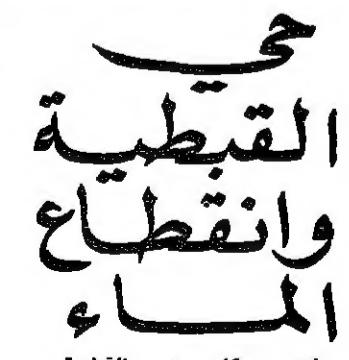 حي
القبطية
وانقطاع
الماء